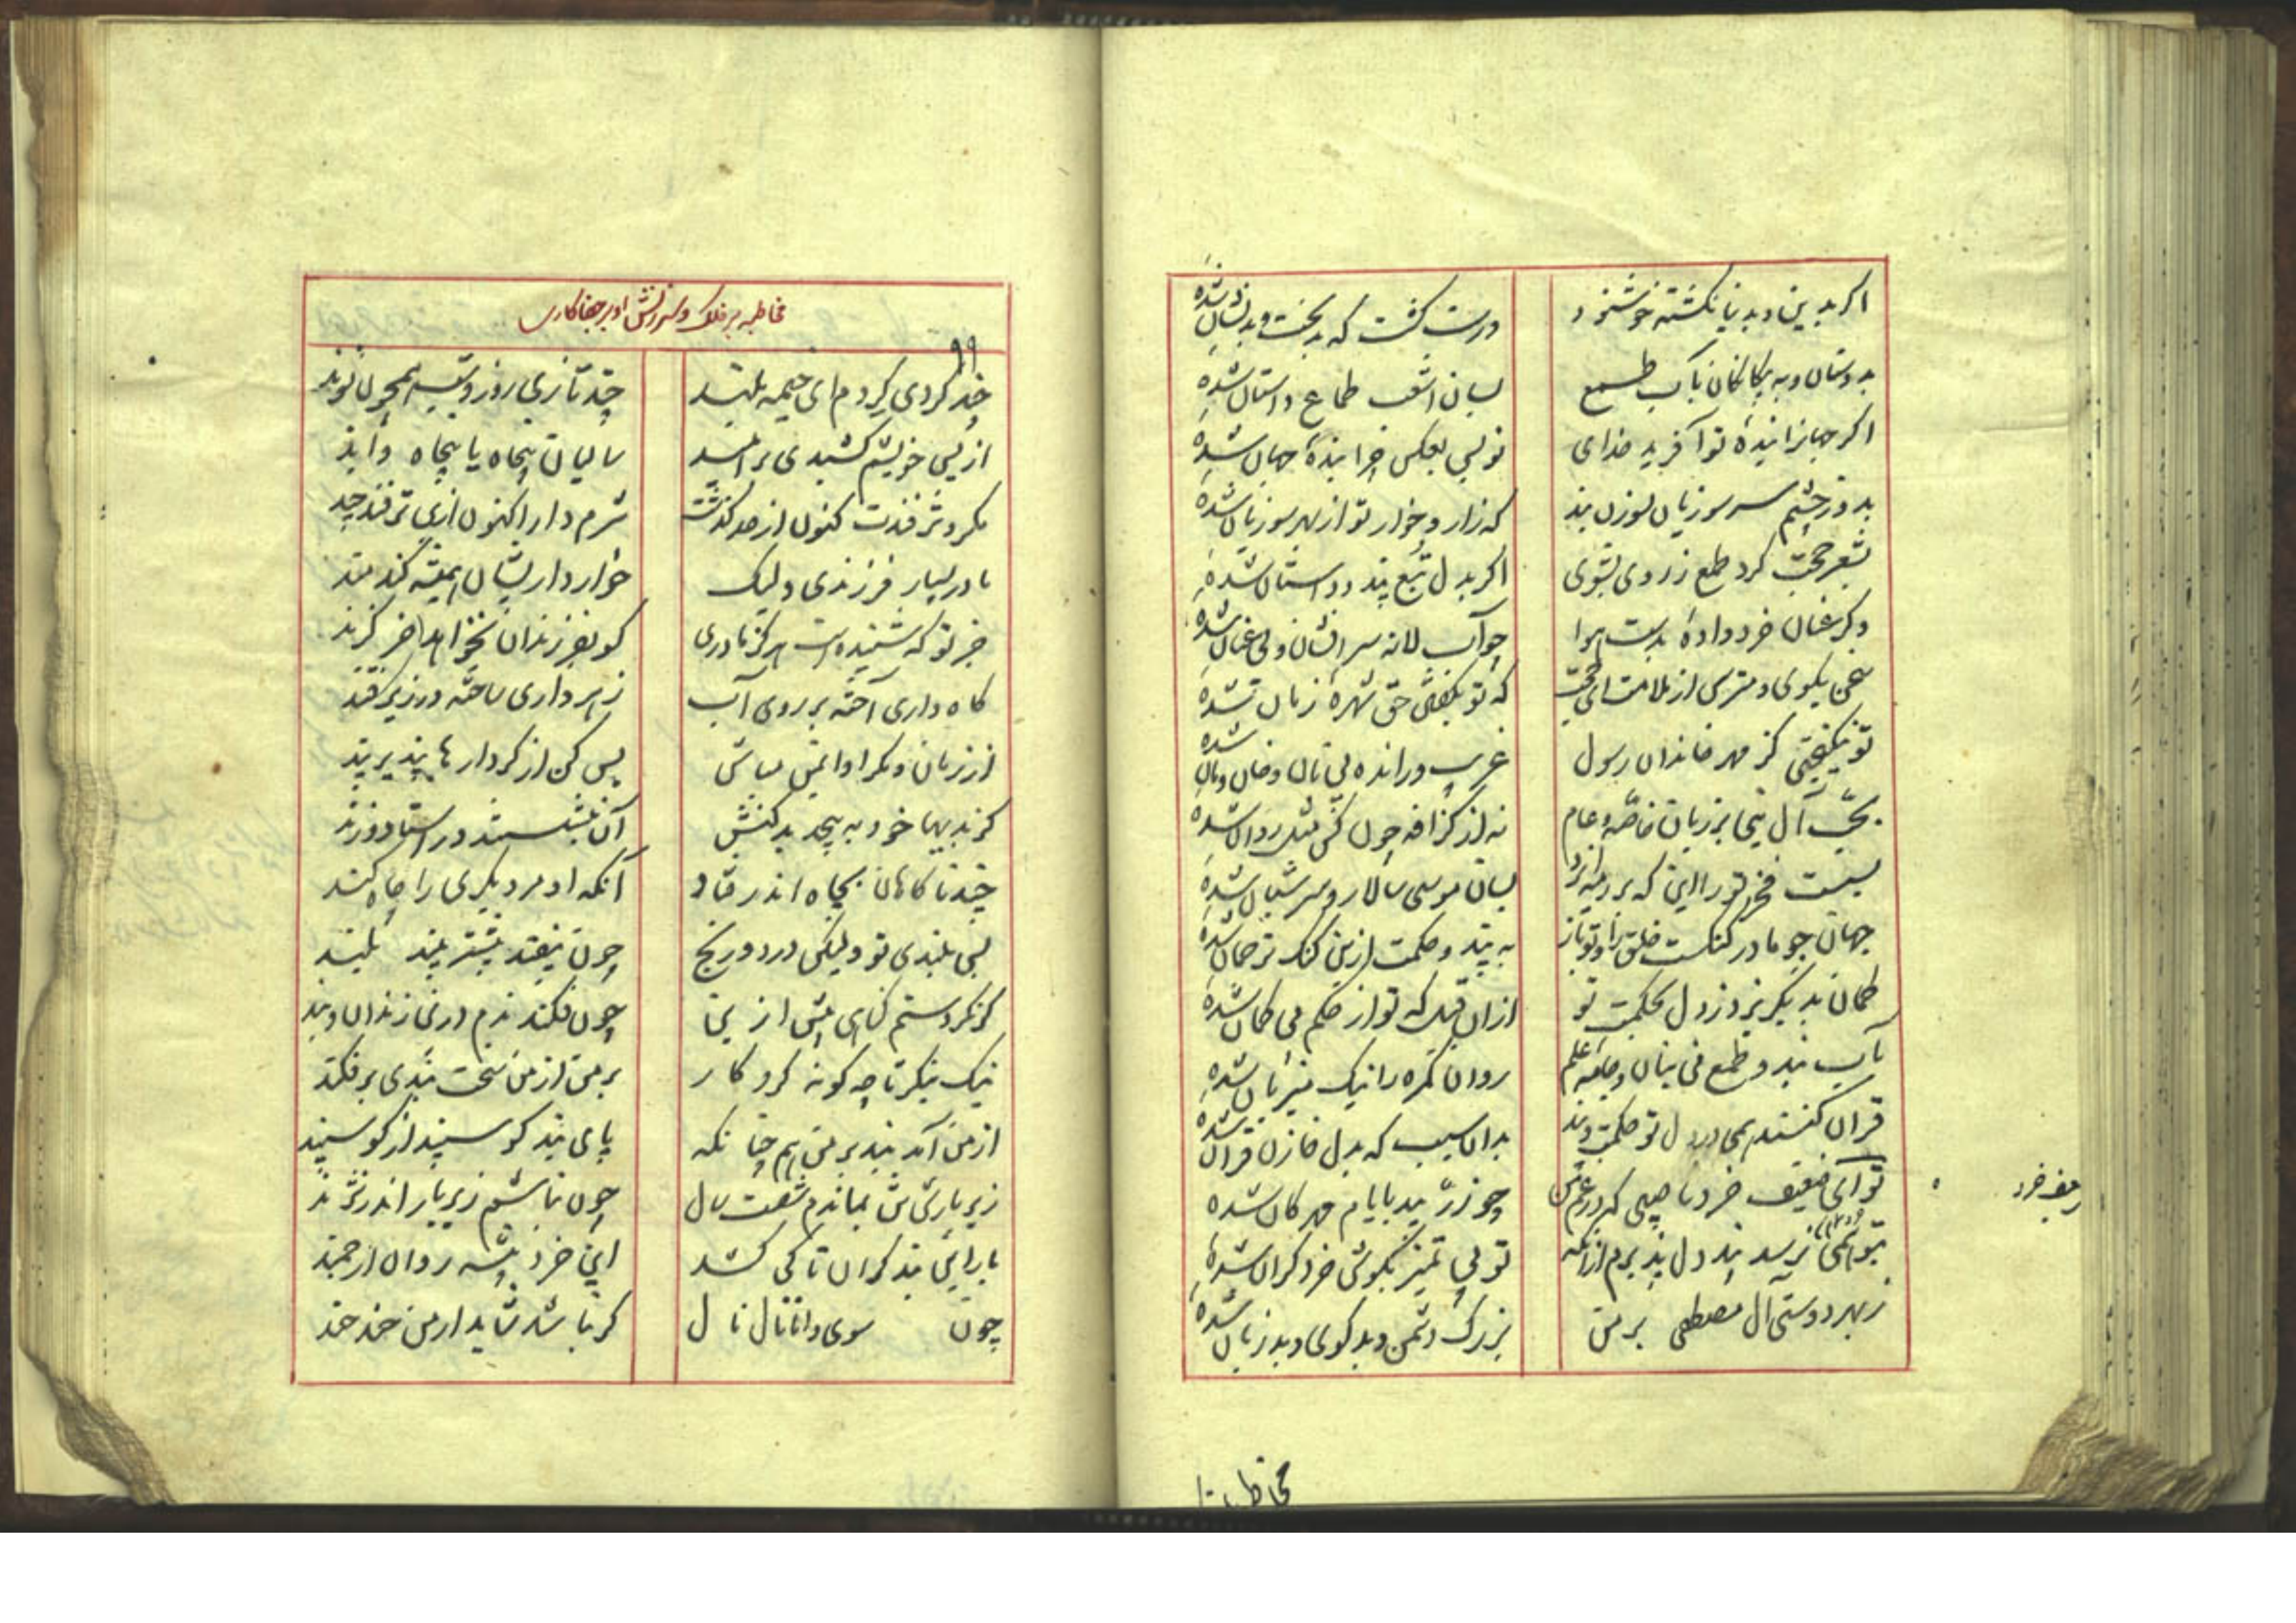 اگر بدین و بدنیا نگشته خوشنود درست گشت که بدبخت و بدنشان شدهٔ
بدوستان و به بیگانگان بباب طمع بسان اشعب طماع داستان شدهٔ
اگر جهانرا بندهٔ تو آفرید خدای تو پس بعکس چرا بندهٔ جهان شدهٔ
بدوز چشم سر سوزیان بسوزن پند که زار و خوار تو از بهر سوزیان شدهٔ
بشعر حجت گرد طمع ز روی بشوی اگر بدل تبع پند داستان شدهٔ
وگر عنان خرد دادهٔ بدست هوا چو اسب لانه سرافشان و بی عنان شدهٔ
سخن بگوی و مترس از ملامت ای حجت که تو بگفتن حق شهرهٔ زمان شدهٔ
تو نیکبختی کز مهر خاندان رسول غریب و رانده بی نان و خان و مان شدهٔ
بحب آل نبی بر زبان خاصه و عام نه از گزافه چون کش شده
بست فخر تو را این که بر رمه ایزد بسان موسی سالار و سر شبان شدهٔ
جهان چو مادر گنگست خلق را و تو باز به پند و حکمت ازین گنگ ترجمان شدهٔ
گمان بد بگریزد ز دل بحکمت تو ازان قبل که تو از حکم بی گمان شدهٔ
بآب پند و طمع فی بیان و جامهٔ علم روان گمره را نیک میزبان شدهٔ
قران کنند همی در دل تو حکمت و پند بدان سبب که بدل خازن قران شدهٔ
تو ای ضعیف خرد ناصبی که در غم من چو زر بید بایام مهرگان شدهٔ
بتو همی نرسد پند دل پذیرم ازانکه تو بی تمیز بگوش خرد گران شدهٔ
ز بهر دوستی آل مصطفی بر من بزرگ دشمن و بدگوی و بدزبان شدهٔ
ضعیف خرد
مخاطبه بر فلک و سرزنش او بر جفاکاری
۹۹
چند گردی گردم ای خیمه بلند چند تازی روز و شب همچون نوند
از پس خویشم کشیدی بر امید سالیان پنجاه یا پنجاه و اند
مکر و ترفندت کنون از حد گذشت شرم دار اکنون ازین ترفند چند
مادر بسیار فرزندی و لیک خوار داریشان همیشه کند مند
جز تو که شنیده است هرگز مادری کو بفرزندان نخواهد جز گزند
کاه داری آخته بر روی آب زهر داری ساخته در زیر قند
از زبان و مکر او ایمن مباش بس کن از کردارها بپذیر پند
کز بدیها خود به پیچد بدکنش آن نبشتستند در استا و زند
چند ناگاهان بچاه اندر فتاد آنکه او مر دیگری را چاه کند
بس بلندی تو ولیکن درد و رنج چون بیفتد بیشتر بیند بلند
گر نکردستم گناهی پیش ازین چون فکند ندم درین زندان و بند
نیک بنگر تا چه گونه کردگار بر من از من سخت بندی برفکند
از من آمد بند بر من هم چنانکه پای بند گوسپند از گوسپند
زیر بارش بماندم شصت سال چون نباشم زیر بار اندر نژند
بار این بند گران تا کی کشد این خرد پیشه روان ارجمند
چون سوی دانا نال نال گر نباشد شاید از من خند خند